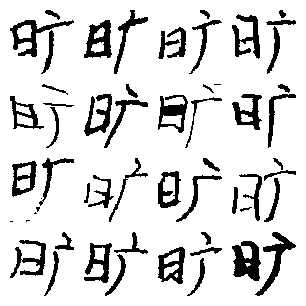 旷旷旷旷
旷旷旷旷
旷旷旷旷
旷旷旷旷